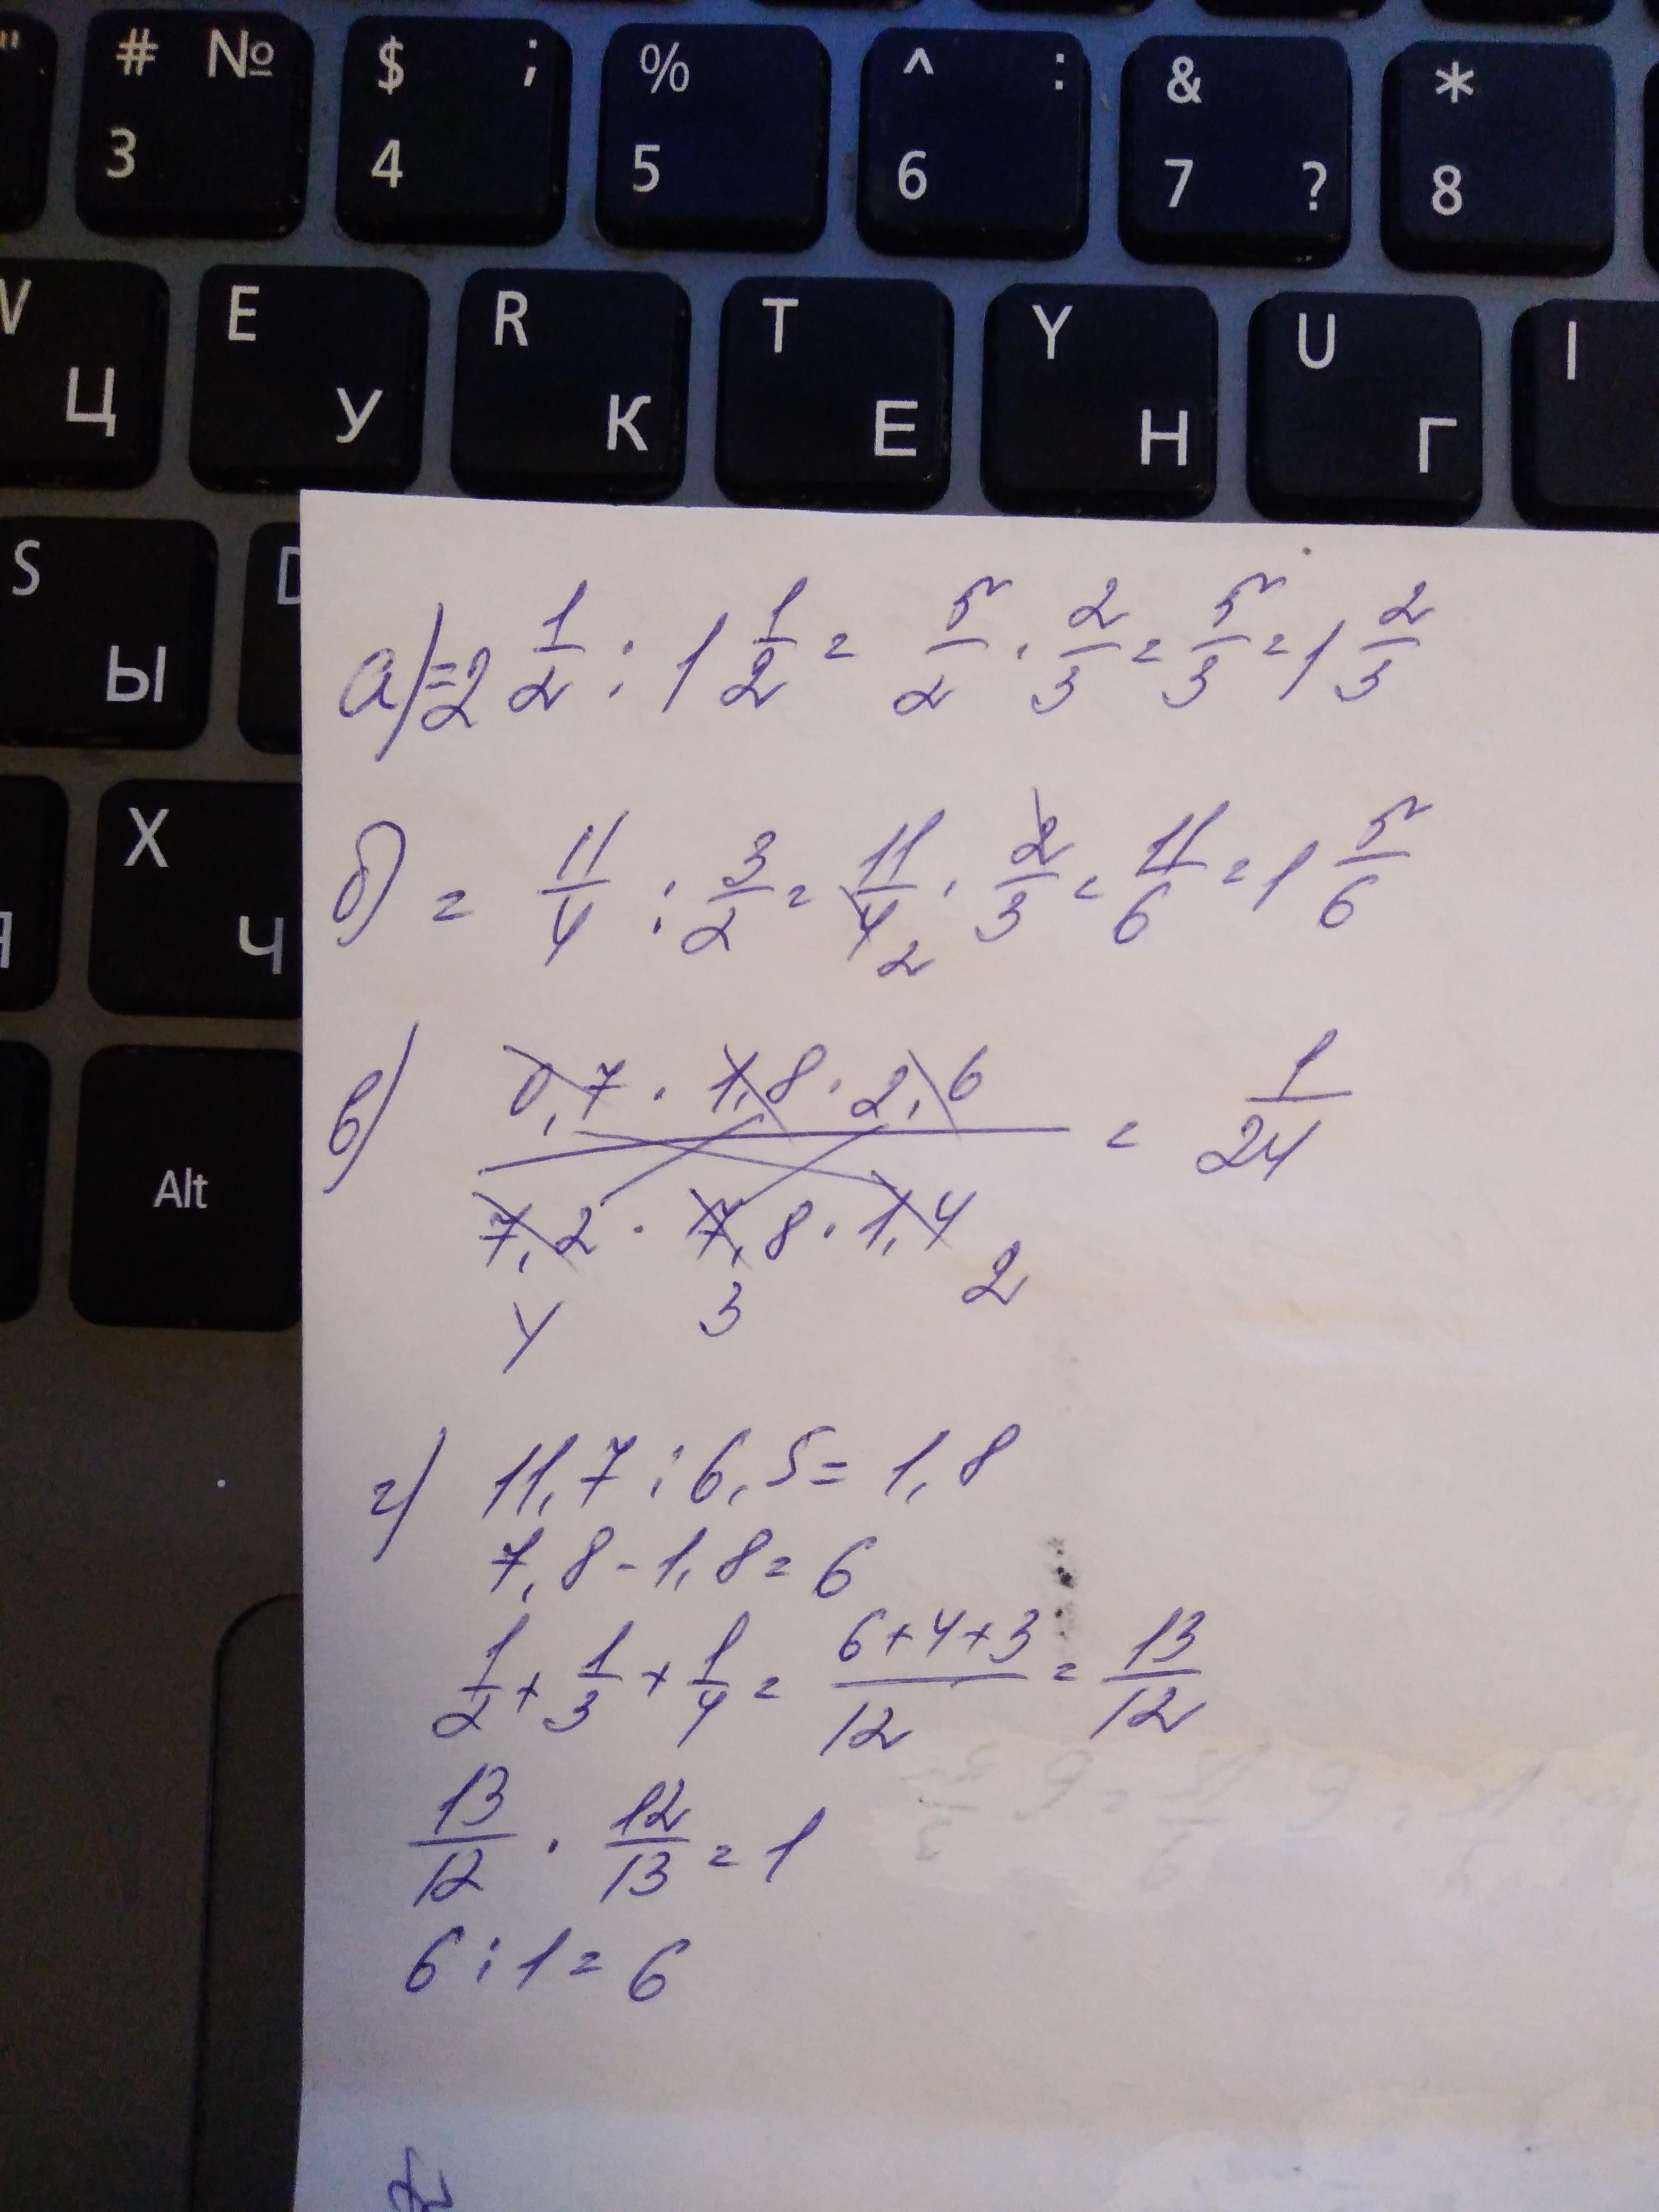 " # № $ ; % ^ : & *
3 4 5 6 7 ? 8
W E R T Y U I
Ц У К Е Н Г
S D
Ы
X
Ч
Я
Alt
а) = 2 1/2 : 1 1/2 = 5/2 · 2/3 = 5/3 = 1 2/3
б) = 11/4 : 3/2 = 11/4 2 · 2/3 = 11/6 = 1 5/6
в) 0,7 · 1,8 · 2,6 / 7,2 · 7,8 · 1,4 = 1/24
4 3 2
г) 11,7 : 6,5 = 1,8
7,8 - 1,8 = 6
1/2 + 1/3 + 1/4 = 6+4+3/12 = 13/12
13/12 · 12/13 = 1
6 : 1 = 6